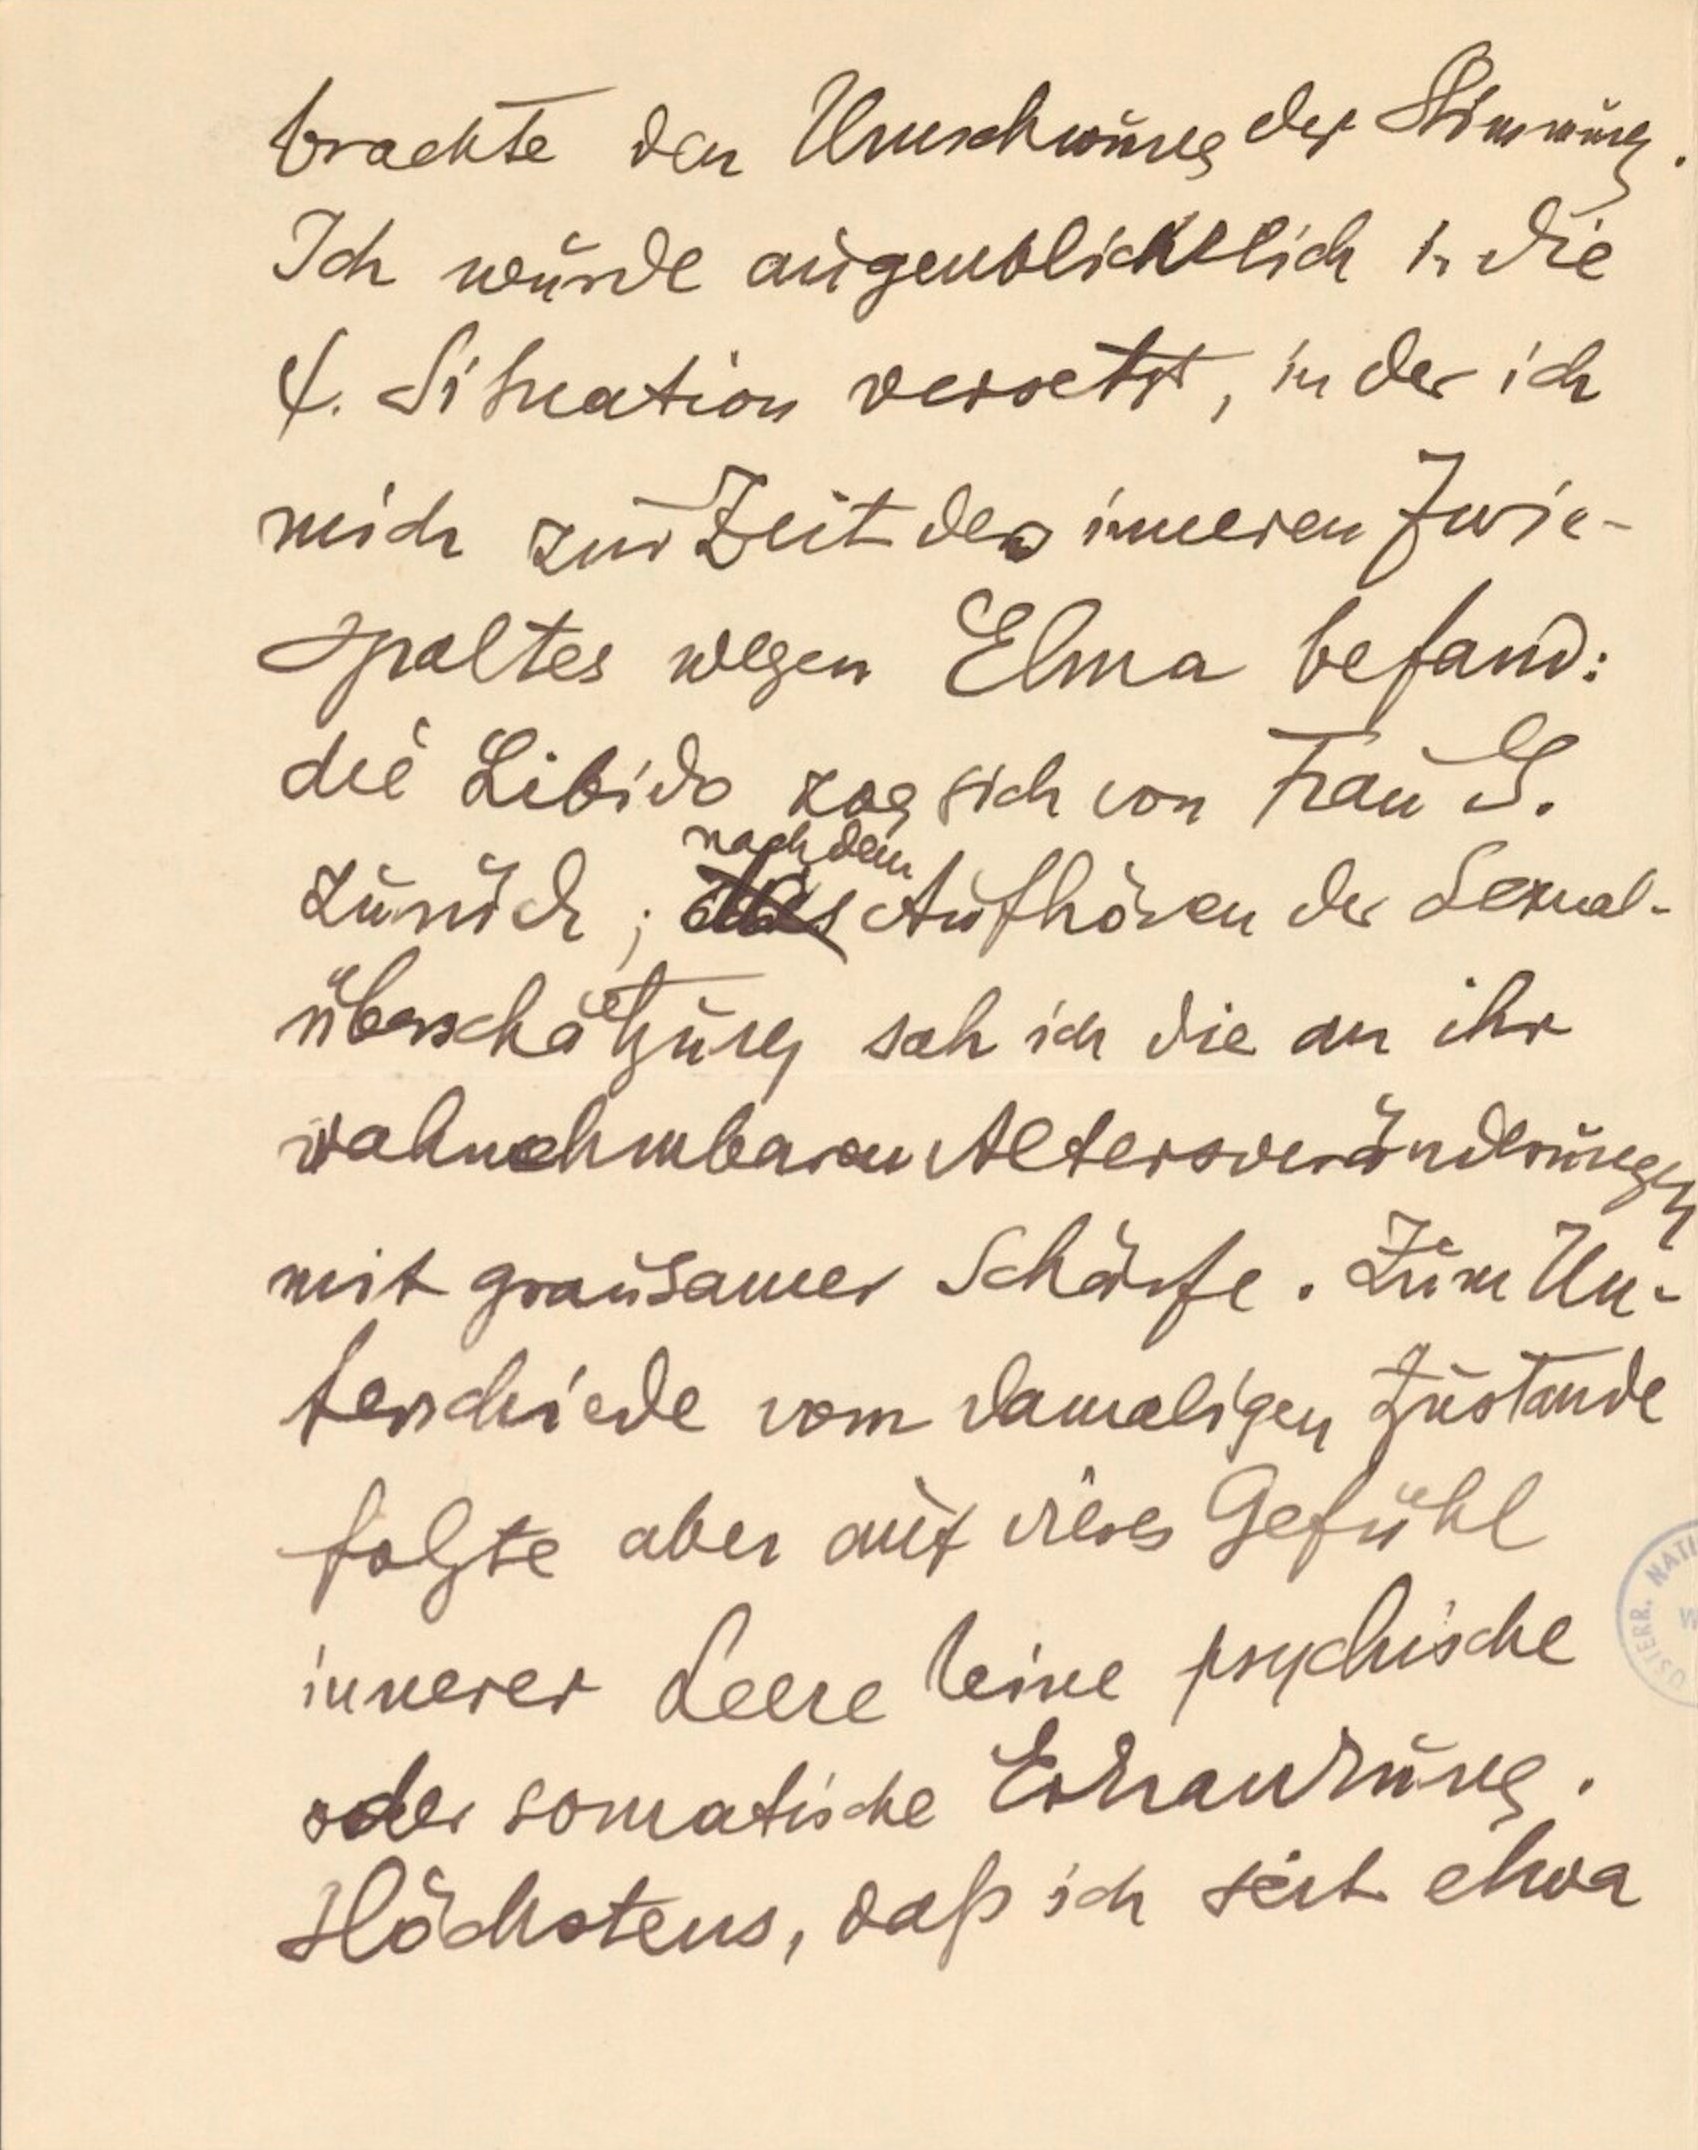 brachte den Umschwung der Stimmung.
Ich wurde augenblicklich in die
Situation versetzt, in der ich
mich zur Zeit des inneren Zwie-
spaltes wegen Elma befand:
die Libido zog sich von Frau G.
zurück; nach dem Aufhören der Sexual-
überschätzung sah ich die an ihr
wahnehmbaren Altersveränderungen
mit grausamer Schärfe. Zum Un-
terschiede vom damaligen Zustande
folgte aber auf dieses Gefühl
innerer Leere keine psychische
oder somatische Erkrankung.
Höchstens, daß ich seit etwa
ÖSTERR. NATI